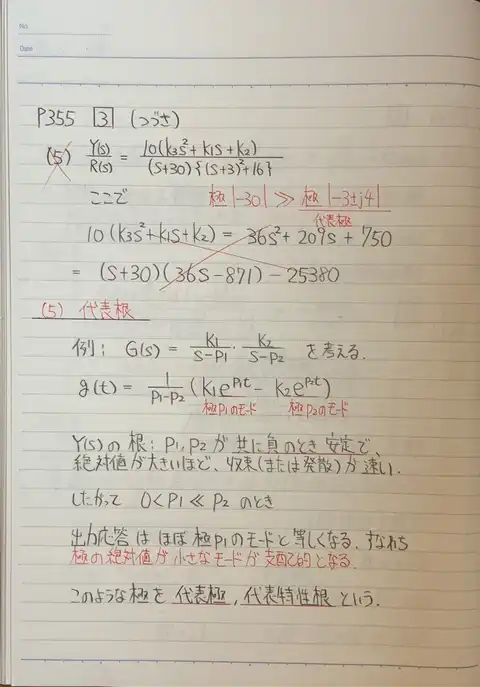 No.
Date
P355 3 (つづき)
(5) Y(s)/R(s) = 10(k3s²+k1s+k2)/(s+30){(s+3)²+16}
ここで 極|-30| ≫ 極|-3±j4|
代表極
10(k3s²+k1s+k2) = 36s²+209s+750
= (s+30)(36s-871)-25380
(5) 代表根
例: G(s) = K1/s-P1 · K2/s-P2 を考える.
g(t) = 1/P1-P2 (K1e^P1t - K2e^P2t)
極P1のモード 極P2のモード
Y(s)の根: P1,P2が共に負のとき安定で、
絶対値が大きいほど、収束(または発散)が速い.
したがって 0<P1≪P2のとき
出力応答はほぼ極P1のモードと等しくなる. すなわち
極の絶対値が小さなモードが支配的となる.
このような極を代表極, 代表特性根という.